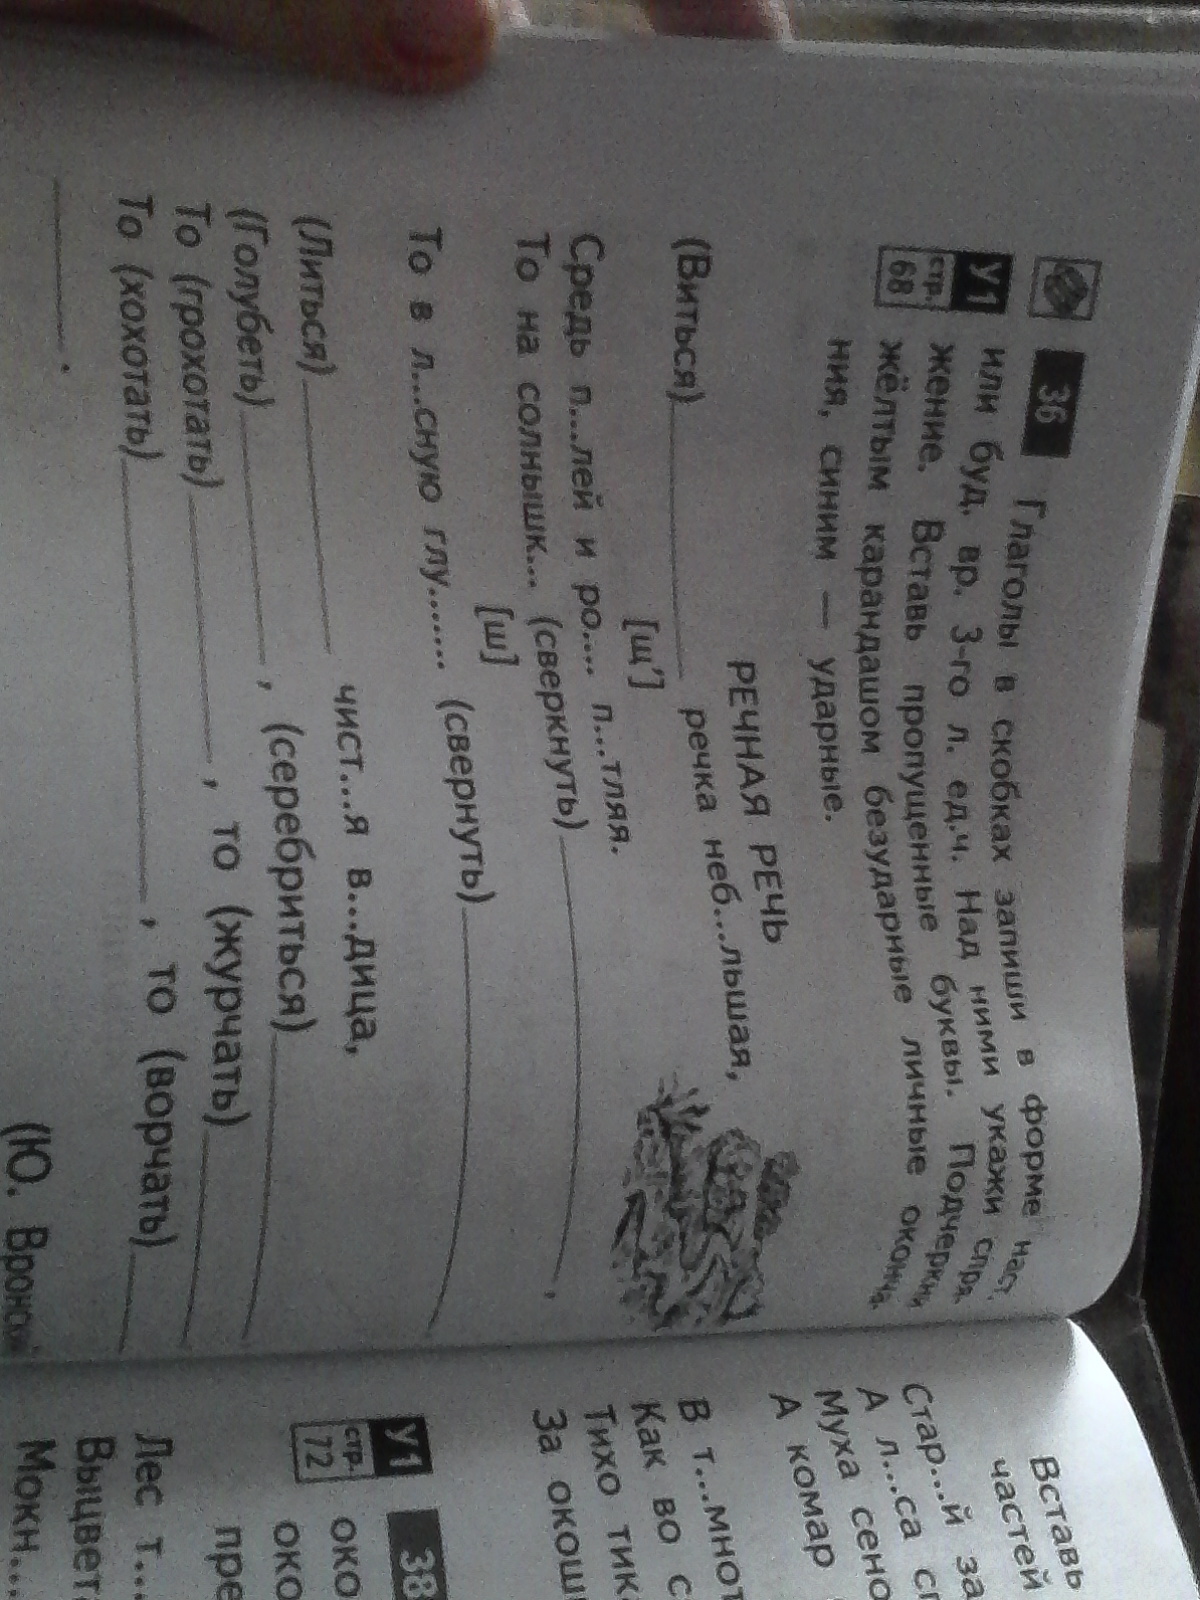 36 Глаголы в скобках запиши в форме наст.
У1 или буд. вр. 3-го л. ед.ч. Над ними укажи спря-
стр. 68 жение. Вставь пропущенные буквы. Подчеркни
жёлтым карандашом безударные личные оконча-
ния, синим — ударные.
РЕЧНАЯ РЕЧЬ
(Виться) речка неб...льшая,
[щ']
Средь п...лей и ро.... п...тляя.
То на солнышк... (сверкнуть) ,
[ш]
То в л...сную глу...... (свернуть)
(Литься) чист...я в...дица,
(Голубеть) , (серебриться)
То (грохотать) , то (журчать)
То (хохотать) , то (ворчать)
.
(Ю. Вронский
Вставь
частей
Стар...й за
А л...са сп
Муха сено
А комар
В т...мнот
Как во с
Тихо тик
За окош
У1 38
стр. 72
око
око
пре
Лес т...
Выцвет
Мокн...